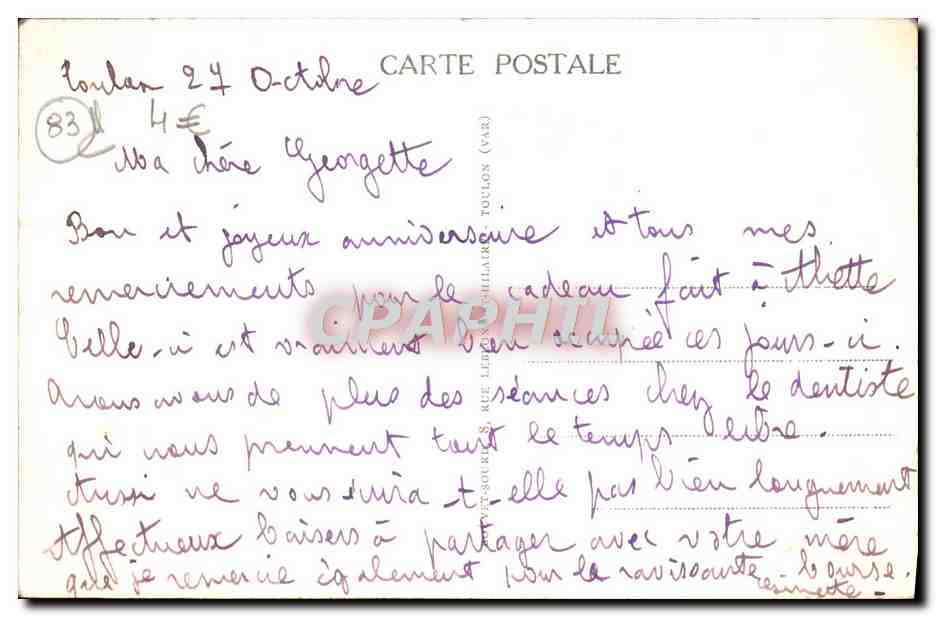 CARTE POSTALE
Toulon 27 Octobre
83 4 €
Ma chère Georgette
Bon et joyeux anniversaire et tous mes
remerciements pour le cadeau fait à
Celle-ci est vraiment bien occupée ces jours-ci.
Avons nous de plus des séances chez le dentiste
qui nous prennent tout le temps libre.
Aussi ne vous -t-elle pas bien longuement
Affectueux baisers à partager avec votre mère
que je remercie également pour la ravissante bourse.
RUE HILAIRE - TOULON (VAR)
CPAPHIL